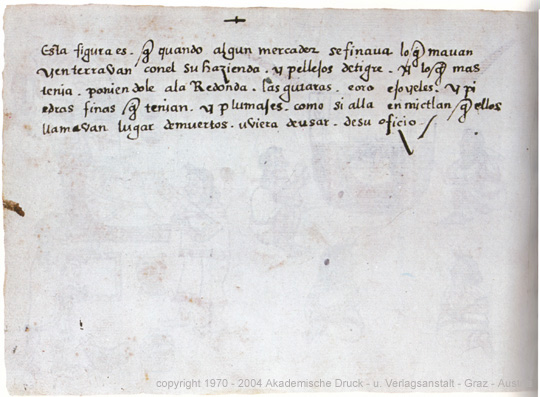 Esta figura es. q̃ quando algun mercader se finava lo q̃mavan
y enterravan conel su hazienda. y pellejos detigre. y lo q̃ mas
tenia. poniendole ala Redonda. las guiaras. eoro e joyeles. y pi
edras finas q̃ tenian. y plumajes. como si alla en mictlan q̃ ellos
llamavan lugar demuertos. uviera deusar. desu oficio.
copyright 1970 - 2004 Akademische Druck - u. Verlagsanstalt - Graz - Aus